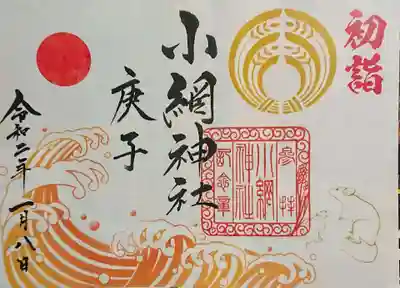 初詣
小網神社
庚子
令和二年一月八日
参拝
小網
神社